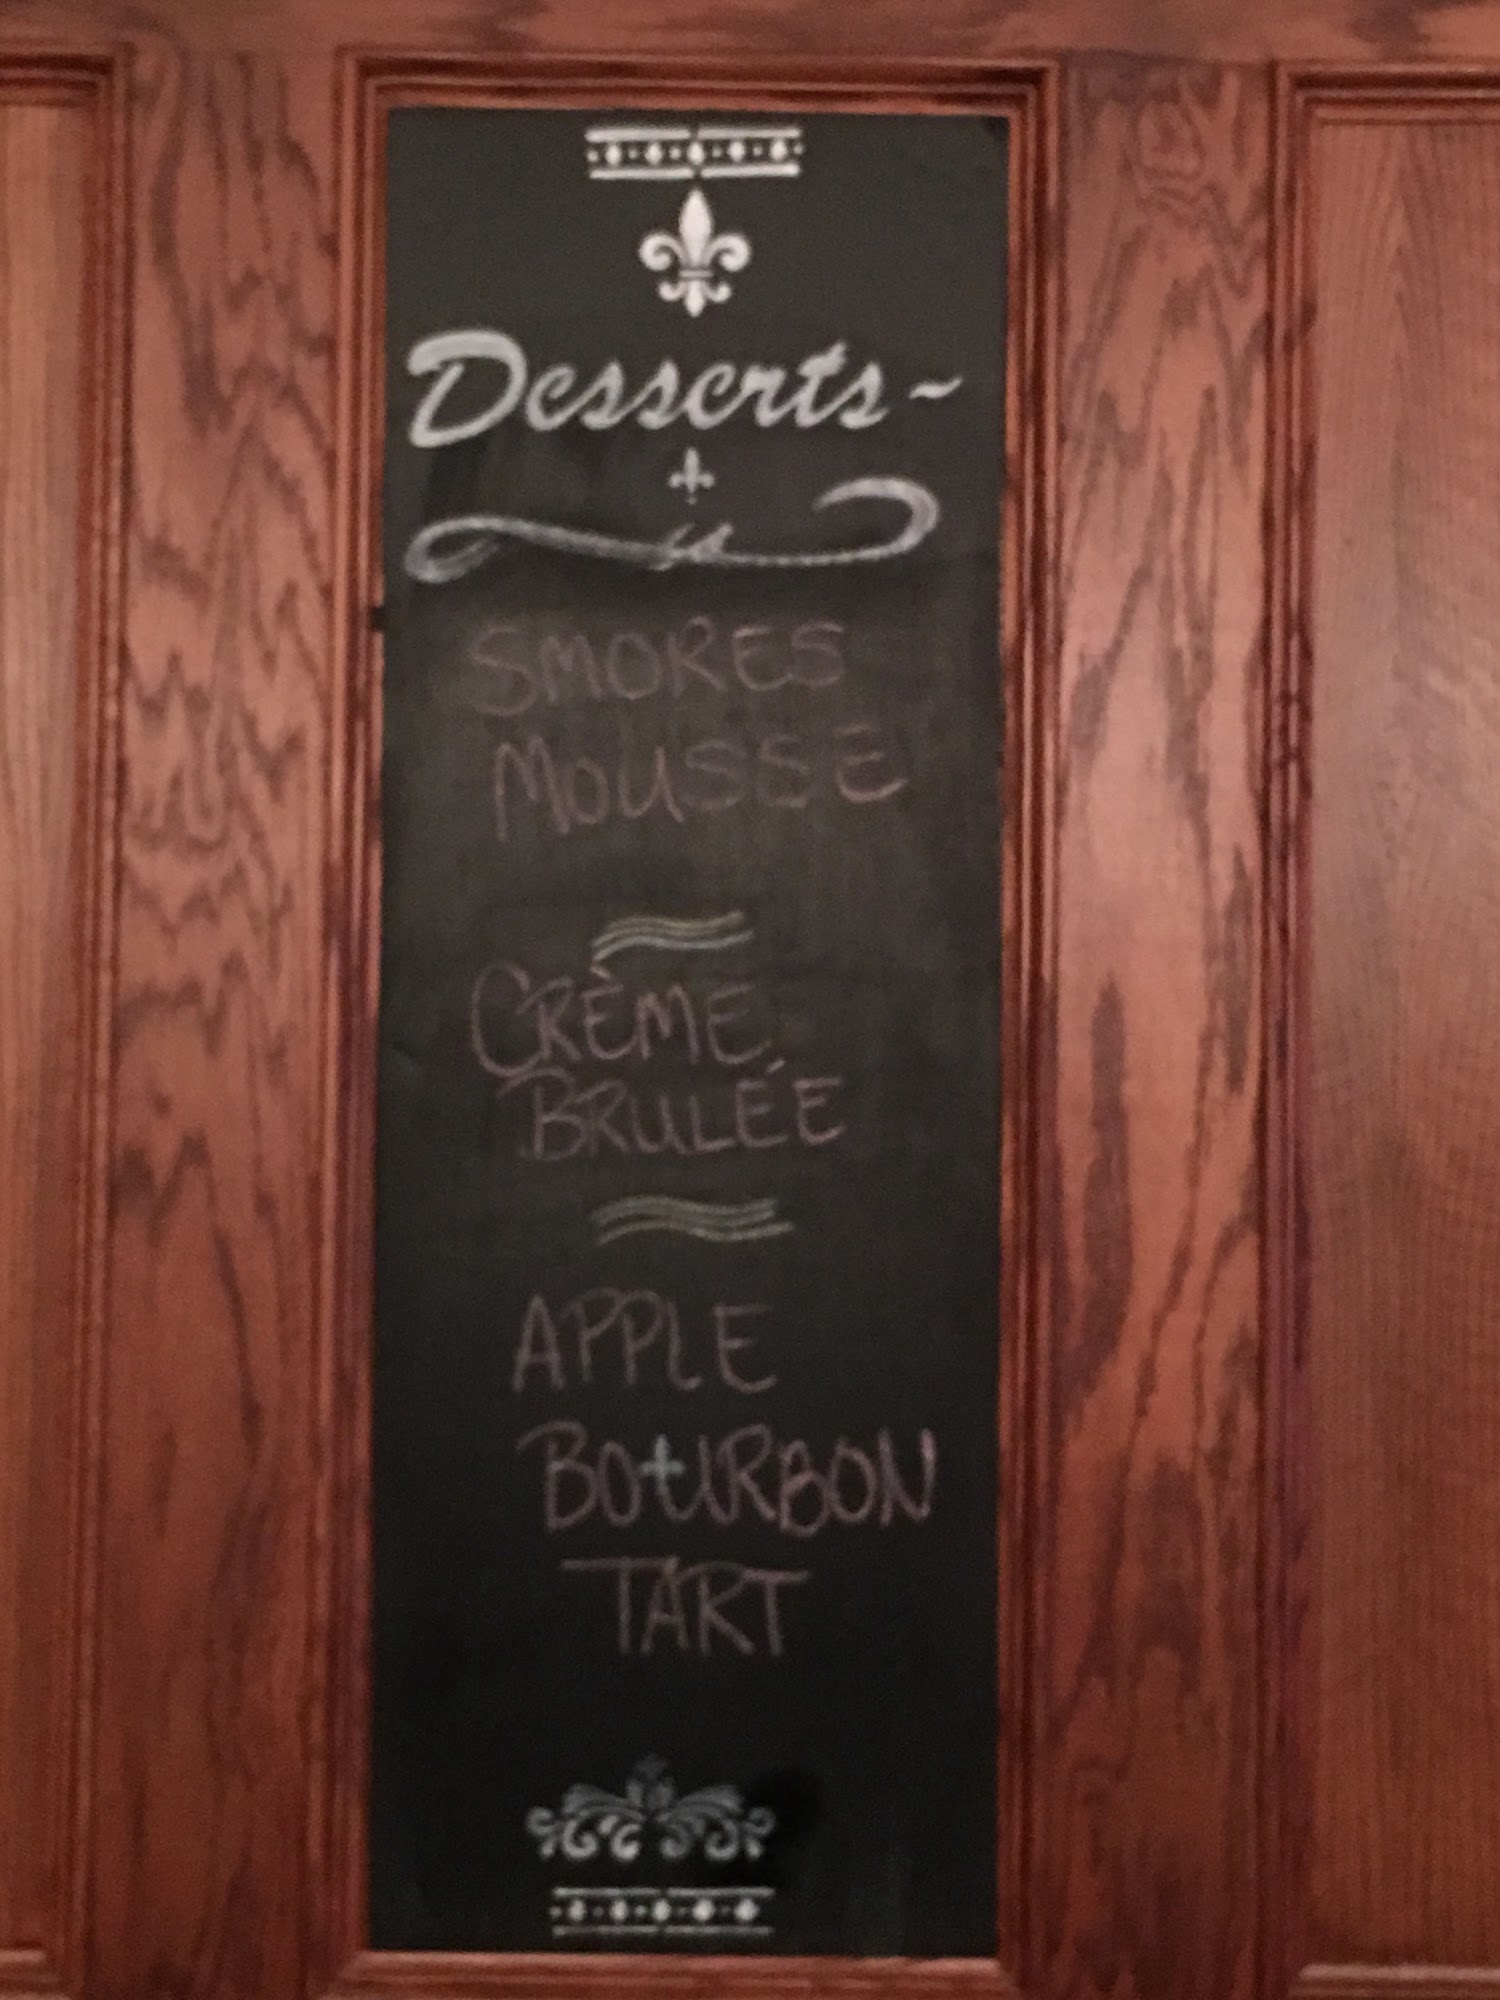 Desserts~
SMORES
MOUSSE
CRÈME
BRULÉE
APPLE
BOURBON
TART